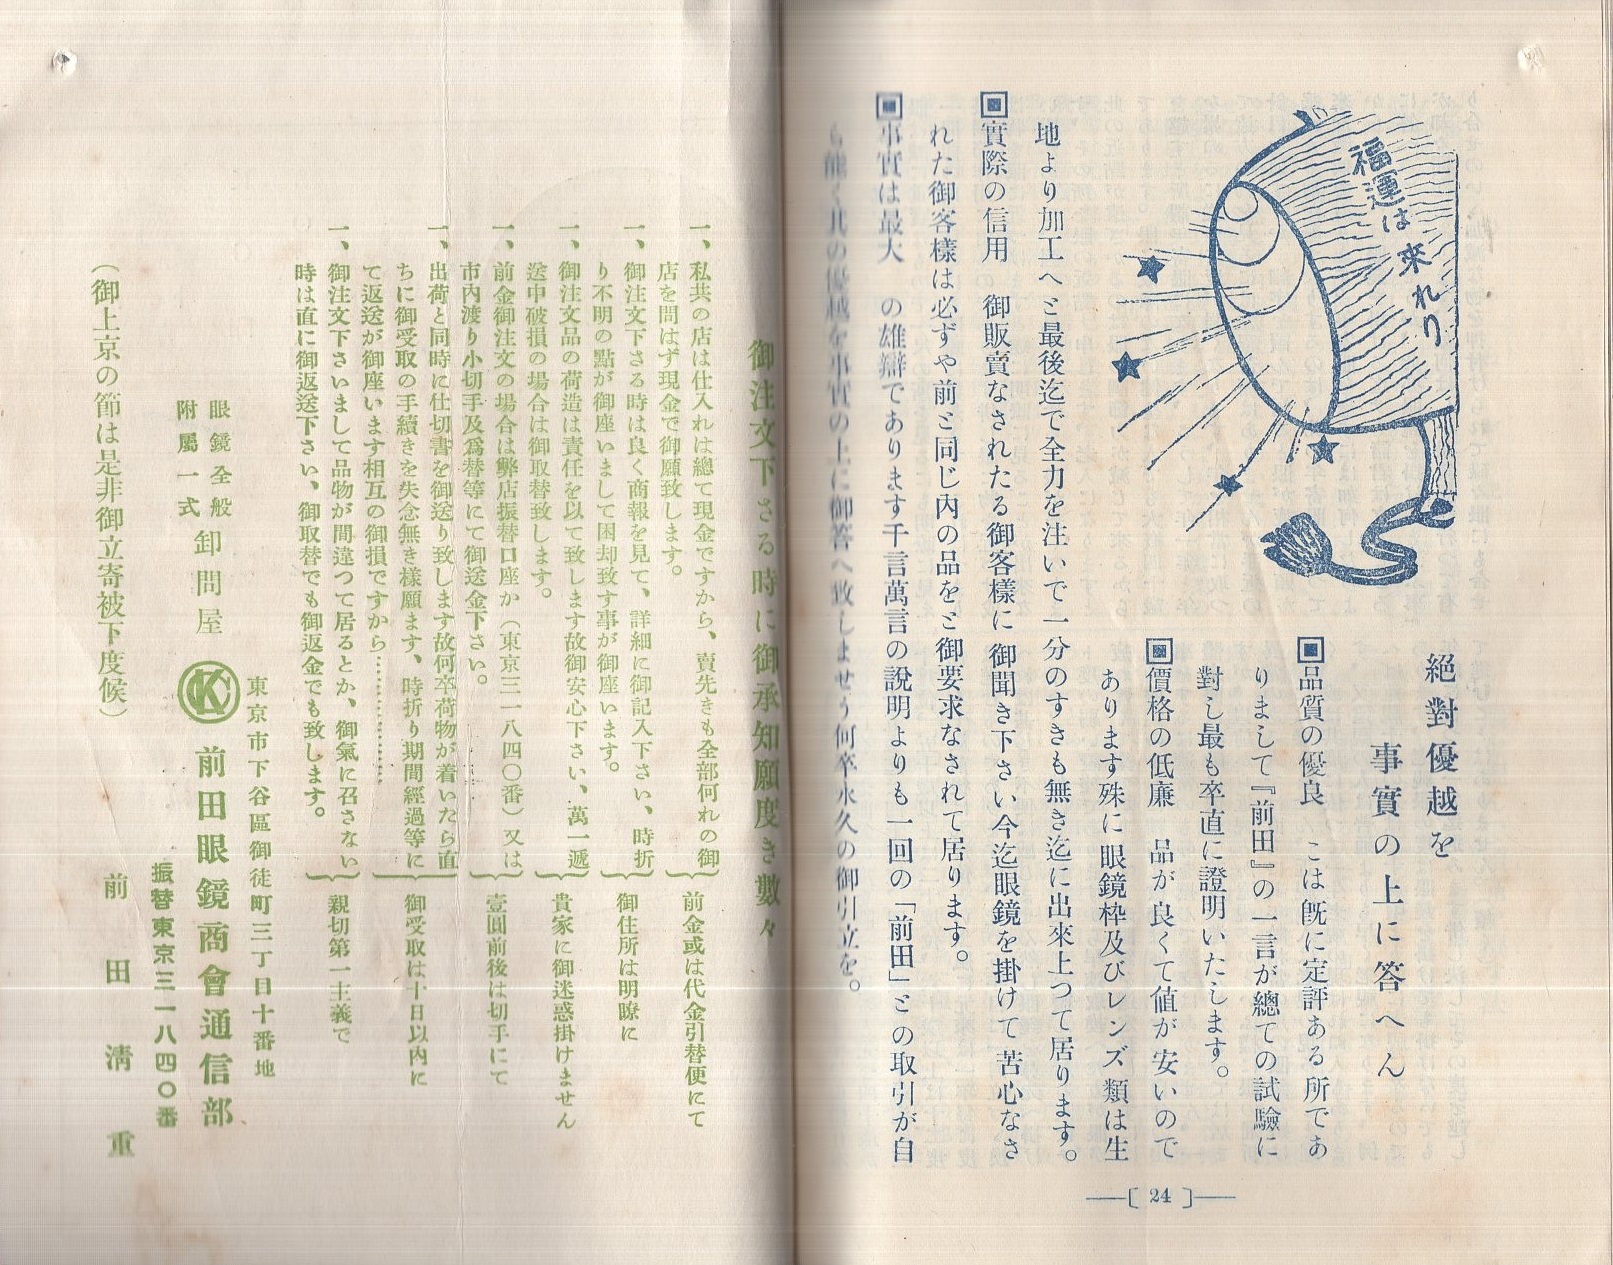 福運は来れり
絶對優越を
事實の上に答へん
品質の優良 こは旣に定評ある所であ
りまして『前田』の一言が總ての試驗に
對し最も卒直に證明いたします。
價格の低廉 品が良くて値が安いので
あります殊に眼鏡枠及びレンズ類は生
地より加工へと最後迄で全力を注いで一分のすきも無き迄に出來上つて居ります。
實際の信用 御販賣なされたる御客樣に御聞き下さい今迄眼鏡を掛けて苦心なさ
れた御客樣は必ずや前と同じ內の品をと御要求なされて居ります。
事實は最大 の雄辯であります千言萬言の說明よりも一回の「前田」との取引が自
ら能く其の優越を事實の上に御答へ致しませう何卒永久の御引立を。
24
御注文下さる時に御承知願度き數々
一、私共の店は仕入れは總て現金ですから、賣先きも全部何れの御
店を問はず現金で御願致します。
前金或は代金引替便にて
一、御注文下さる時は良く商報を見て、詳細に御記入下さい、時折
り不明の點が御座いまして困却致す事が御座います。
御住所は明瞭に
一、御注文品の荷造は責任を以て致します故御安心下さい、萬一遞
送中破損の場合は御取替致します。
貴家に御迷惑掛けません
一、前金御注文の場合は弊店振替口座か（東京三一八四〇番）又は
市內渡り小切手及爲替等にて御送金下さい。
壹圓前後は切手にて
一、出荷と同時に仕切書を御送り致します故何卒荷物が着いたら直
ちに御受取の手續きを失念無き樣願ます、時折り期間經過等に
て返送が御座います相互の御損ですから…………
御受取は十日以內に
一、御注文下さいまして品物が間違つて居るとか、御氣に召さない
時は直に御返送下さい、御取替でも御返金でも致します。
親切第一主義で
東京市下谷區御徒町三丁目十番地
眼鏡全般
附屬一式
卸問屋
前田眼鏡商會通信部
振替東京三一八四〇番
前田淸重
（御上京の節は是非御立寄被下度候）